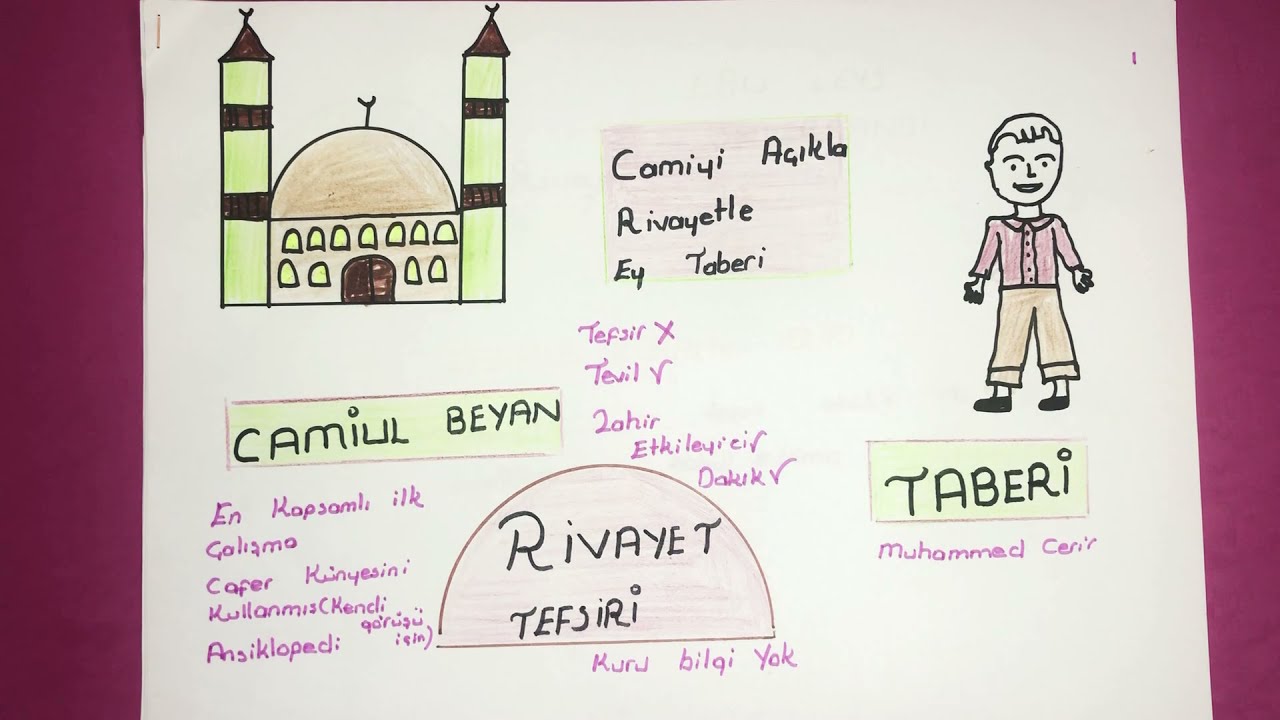 Camiyi Açıkla
Rivayetle
Ey Taberi
Tefsir X
Tevil √
Zahir
Etkileyici √
Dakik √
CAMİUL BEYAN
En Kapsamlı ilk
Çalışma
Cafer Künyesini
Kullanmış (Kendi
görüşü
için)
Ansiklopedi
RİVAYET
TEFSİRİ
Kuru bilgi Yok
TABERİ
Muhammed Cerir